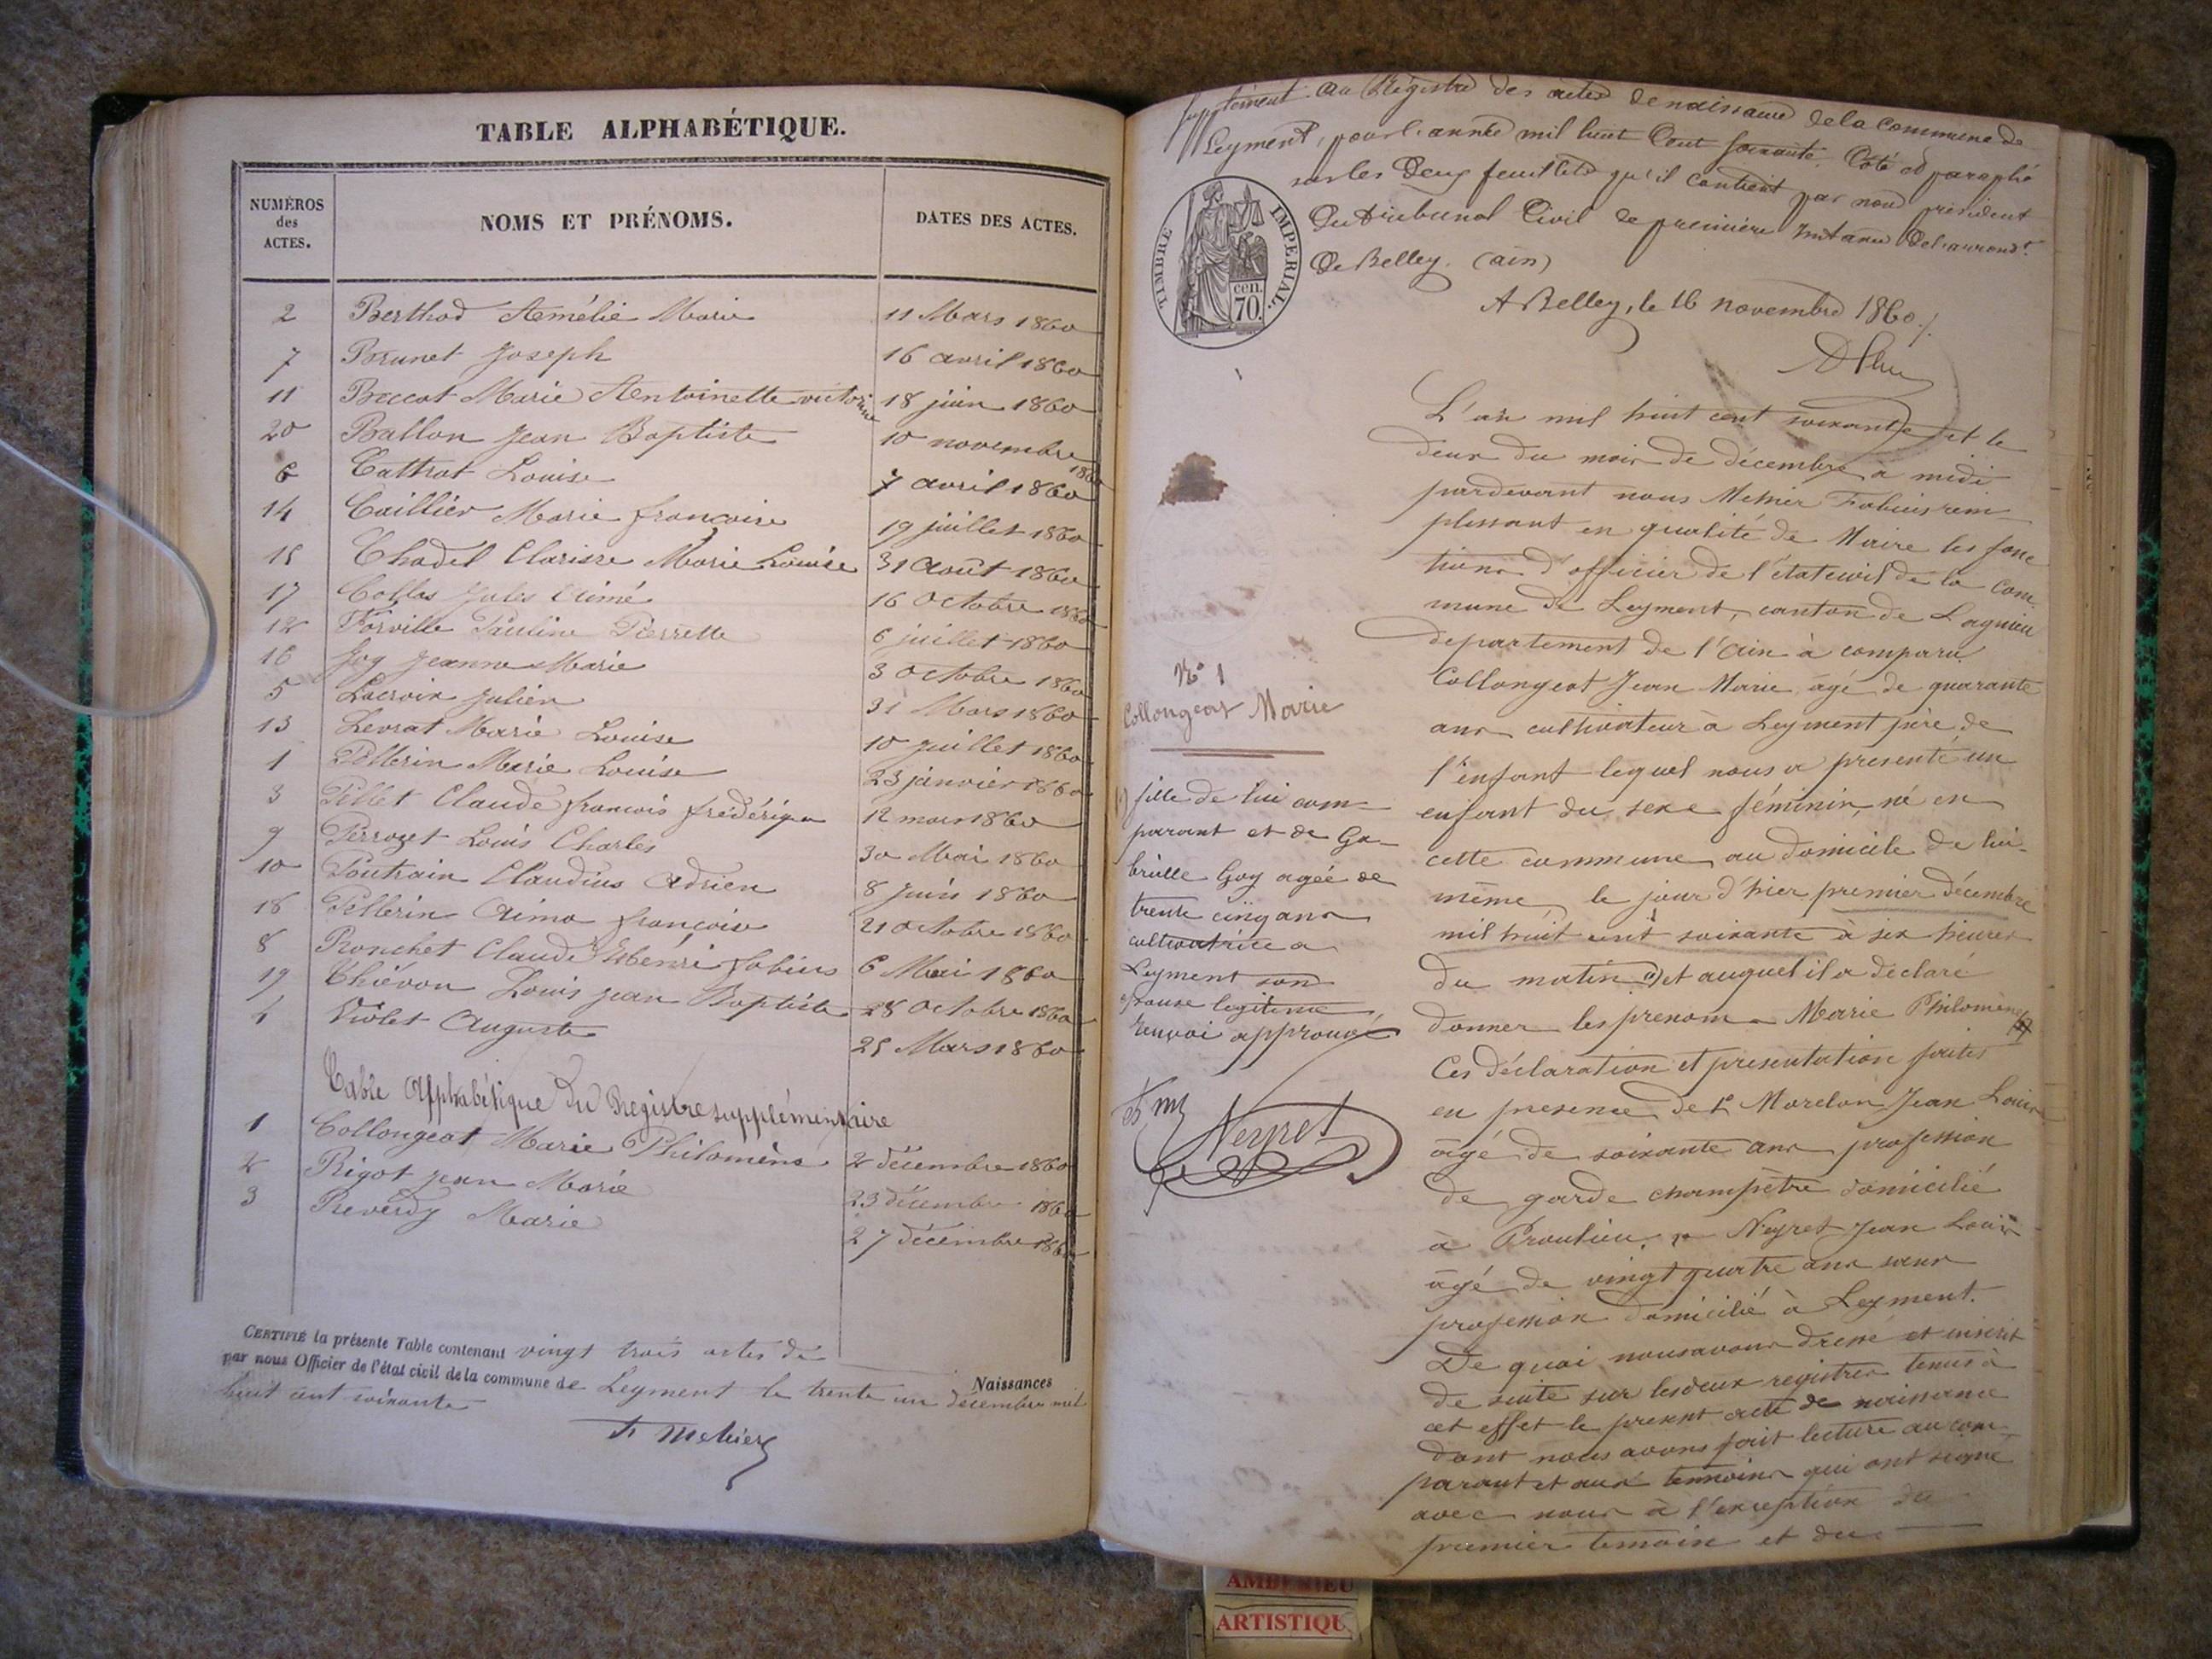 TABLE ALPHABÉTIQUE.
NUMÉROS des ACTES. NOMS ET PRÉNOMS. DATES DES ACTES.
2 Berthod Amélie Marie 11 Mars 1860
7 Brunet Joseph 16 avril 1860
11 Baccot Marie Antoinette victorine 18 juin 1860
20 Ballon Jean Baptiste 10 novembre 1860
6 Cattrat Louise 7 avril 1860
14 Caillier Marie françoise 19 juillet 1860
15 Chadel Clarisse Marie Louise 31 Août 1860
17 Collas Jules Aimé 16 Octobre 1860
12 Forville Pauline Pierrette 6 juillet 1860
16 Jeanne Marie 3 Octobre 1860
5 Lacroix Julien 31 Mars 1860
13 Levrat Marie Louise 10 juillet 1860
1 Pellerin Marie Louise 23 janvier 1860
3 Pillet Claude françois frédérique 12 mars 1860
9 Perrozet Louis Charles 30 Mai 1860
10 Poutrain Claudius Adrien 8 Juin 1860
18 Pellerin Aima françoise 21 octobre 1860
8 Ronchet Claude Henri fabius 6 Mai 1860
19 Thiévon Louis jean Baptiste 28 Octobre 1860
4 Violet Auguste 25 Mars 1860
Table Alphabétique du Registre supplémentaire
1 Collongeat Marie Philomène 2 décembre 1860
2 Rigot jean Marie 23 décembre 1860
3 Reverdy Marie 27 décembre 1860
CERTIFIÉ la présente Table contenant vingt trois actes de Naissances
par nous Officier de l'état civil de la commune de Leyment le trente un décembre mil
huit cent soixante
F. Mehier
Supplément au Régistre des actes de naissance de la Commune de
Leyment, pour l'année mil huit Cent soixante. Coté et paraphé
sur les Deux feuillets qu'il contient par nous président
Du tribunal Civil de première Instance De l'arrond.t
De Belley. (ain)
A Belley, le 16 novembre 1860./.
TIMBRE IMPERIAL.
cen. 70.
L'an mil huit cent soixante et le
deux du mois de décembre à midi
pardevant nous Mehier Fabius rem
plissant en qualité de Maire les fonc
tions d'officier de l'état civil de la com
mune de Leyment, canton de Lagnieu
departement de l'Ain à comparu
Collongeat Jean Marie âgé de quarante
ans cultivateur à Leyment père de
l'enfant lequel nous a presenté un
enfant du sexe féminin, né en
cette commune au domicile de lui
même le jour d'hier premier décembre
mil huit cent soixante à six heures
du matin (1) et auquel il a déclaré
donner les prenom Marie Philomène
Ces déclaration et presentation faites
en presence de 1° Morelon Jean Louis
âgé de soixante ans profession
de garde champêtre domicilié
à Proulieu, 2° Neyret Jean Louis
âgé de vingt quatre ans sans
profession domicilié à Leyment.
De quoi nous avons dressé et inscrit
de suite sur les deux registres tenus à
cet effet le present acte de naissance
dont nous avons fait lecture au com
parant et aux temoins qui ont signé
avec nous à l'exception du
premier temoin et du
N° 1
Collongeat Marie
(1) fille de lui com
parant et de Ga
brielle Goy agée de
trente cinq ans
cultivatrice a
Leyment son
epouse legitime
renvoi approuvé
F. M
Neyret
AMBERIEU
ARTISTIQU